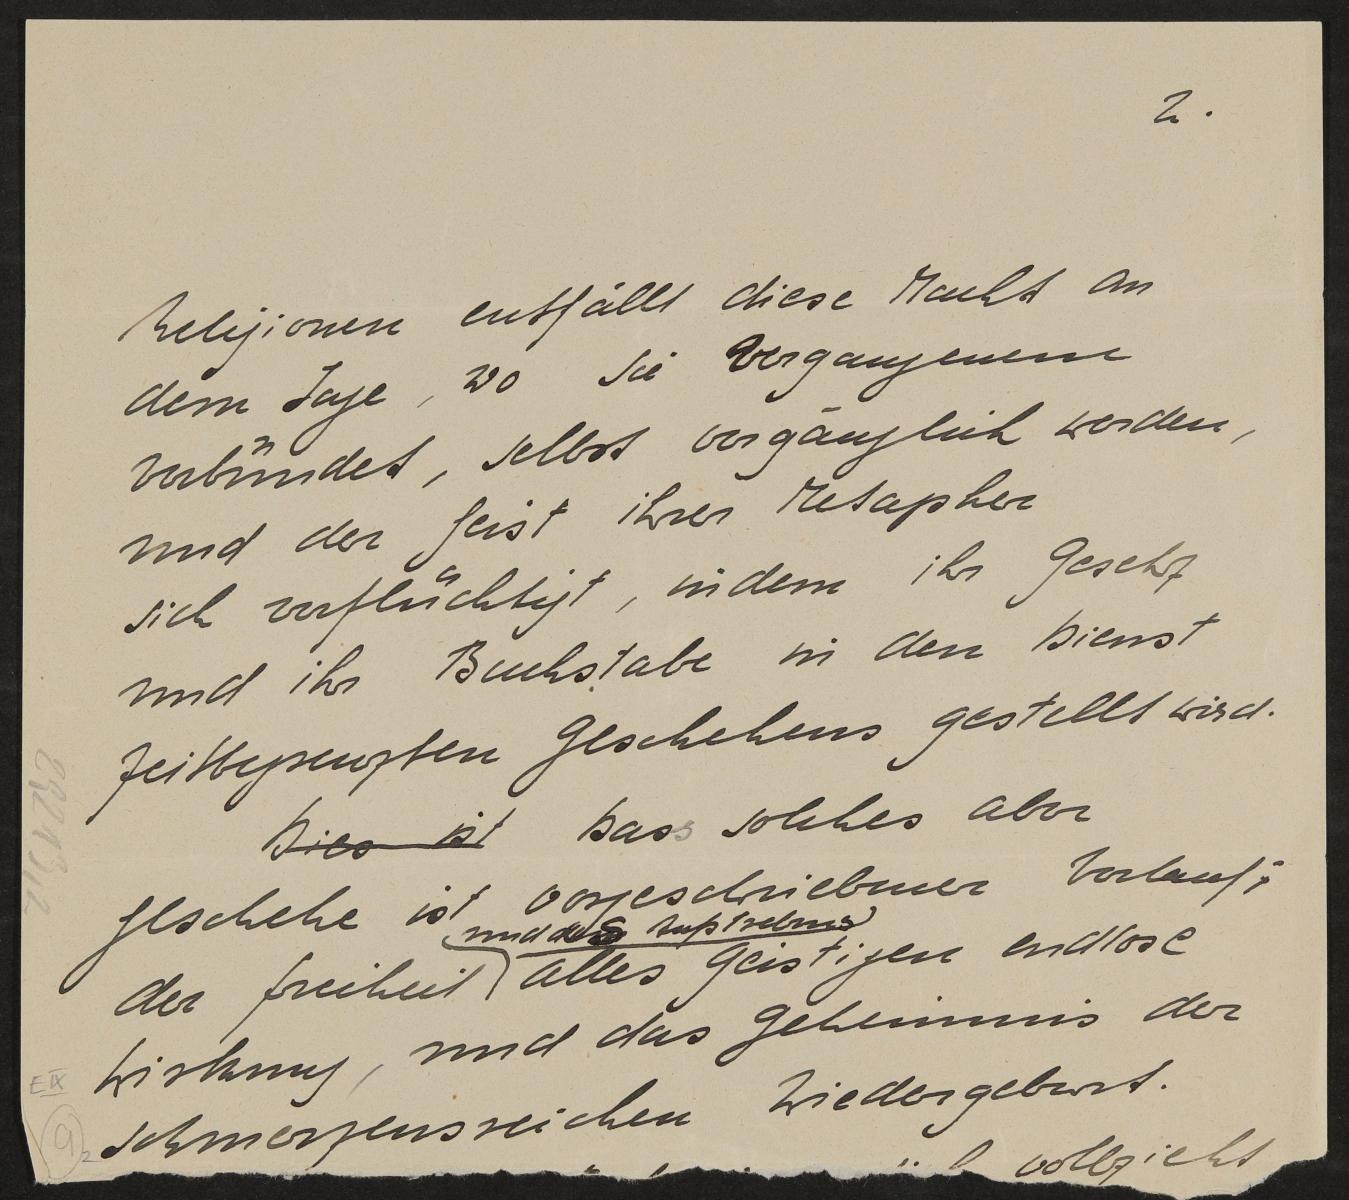 2.
Religionen entfällt diese Macht an
dem Tage, wo sie Vergangenem
verbündet, selbst vergänglich werden,
und der Geist ihrer Metapher
sich verflüchtigt, indem ihr Gesetz
und ihr Buchstabe in den Dienst
zeitbegrenzten Geschehens gestellt wird.
Dies ist Dass solches aber
geschehe ist vorgeschriebener Verlauf;
und des
der Freiheit alles Geistigen endlose
Wirkung, und das Geheimnis der
schmerzensreichen Wiedergeburt.
vollzieht
29213/2
E IX
9 2